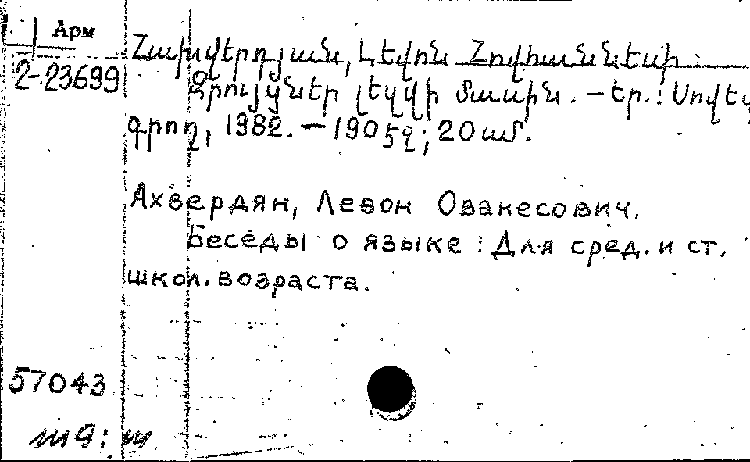 Арм
Հախվերդյան, Լևոն Հովհաննեսի
2-23699
Զրույցներ լեզվի մասին. — Եր.: Սովետ
գրող, 1982. — 190 էջ; 20 սմ.
Ахвердян, Левон Ованесович.
Беседы о языке : Для сред. и ст.
школ. возраста.
57043